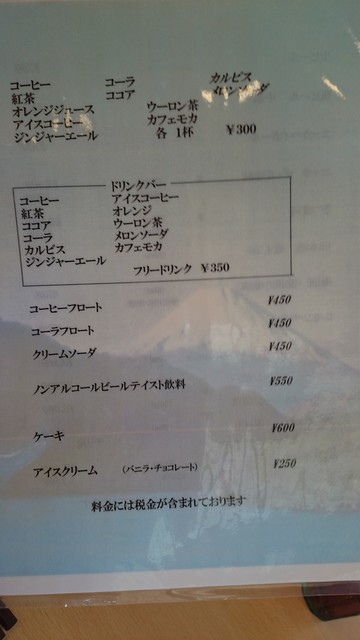 コーヒー コーラ カルピス
紅茶 ココア メロンソーダ
オレンジジュース ウーロン茶
アイスコーヒー カフェモカ
ジンジャーエール 各 1杯 ¥300
ドリンクバー
コーヒー アイスコーヒー
紅茶 オレンジ
ココア ウーロン茶
コーラ メロンソーダ
カルピス カフェモカ
ジンジャーエール
フリードリンク ¥350
コーヒーフロート ¥450
コーラフロート ¥450
クリームソーダ ¥450
ノンアルコールビールテイスト飲料 ¥550
ケーキ ¥600
アイスクリーム (バニラ・チョコレート) ¥250
料金には税金が含まれております